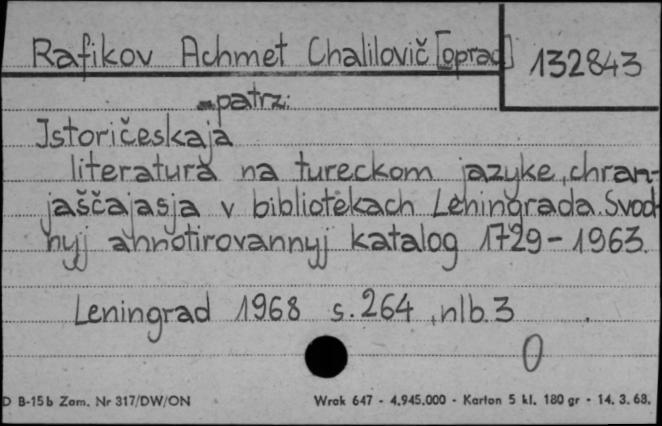 Rafikov Achmet Chalilovič [oprac] 132843
patrz:
Istoričeskaja
literatura na tureckom jazyke, chran-
jaščajasja v bibliotekach Leningrada. Svod-
nyj annotirovannyj katalog 1729-1963.
Leningrad 1968 s. 264, nlb. 3
0
D B-15b Zam. Nr 317/DW/ON Wrak 647 - 4.945.000 - Karton 5 kl. 180 gr - 14. 3. 68.